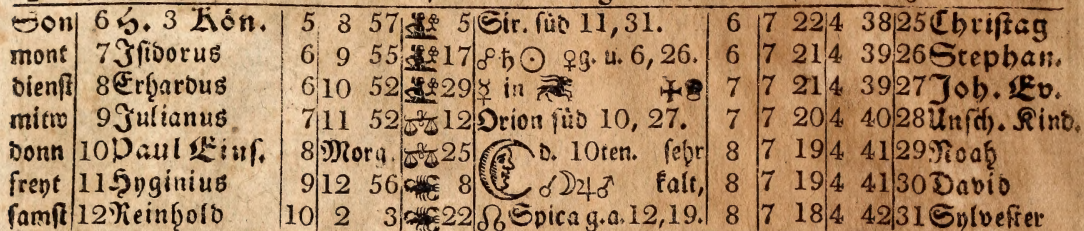 Son 6 H. 3 Kön. 5 8 57 5 Sir. süd 11, 31. 6 7 22 4 38 25 Christag
mont 7 Isidorus 6 9 55 17 ☍♄☉ ♀g. u. 6, 26. 6 7 21 4 39 26 Stephan.
dienst 8 Erhardus 6 10 52 29 ☿ in 7 7 21 4 39 27 Joh. Ev.
mitw 9 Julianus 7 11 52 ♎ 12 Orion süd 10, 27. 7 7 20 4 40 28 Unsch. Kind.
donn 10 Paul Eins. 8 Morg. ♎ 25 d. 10ten. sehr 8 7 19 4 41 29 Noah
freyt 11 Hyginius 9 12 56 8 ☌☽♃♂ kalt, 8 7 19 4 41 30 David
samst 12 Reinhold 10 2 3 22 ☊ Spica g.a. 12, 19. 8 7 18 4 42 31 Sylvester